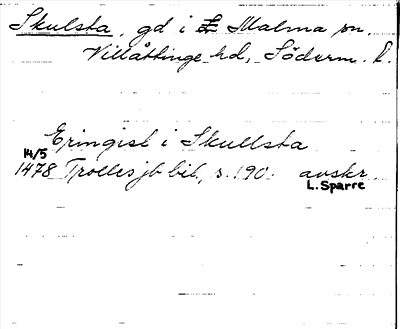 Skulsta, gd i Malma sn.
Villåttinge hd, Söderm. l.
Eringisl i Skullsta
14/5
1478 Trolles jb bil, s. 190. avskr.
L. Sparre